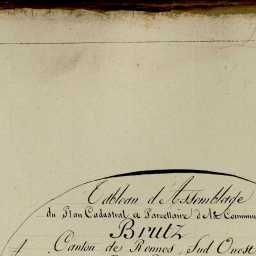 Tableau d'Assemblage
du Plan Cadastral et Parcellaire de la Commune
Brutz
Canton de Rennes Sud Ouest